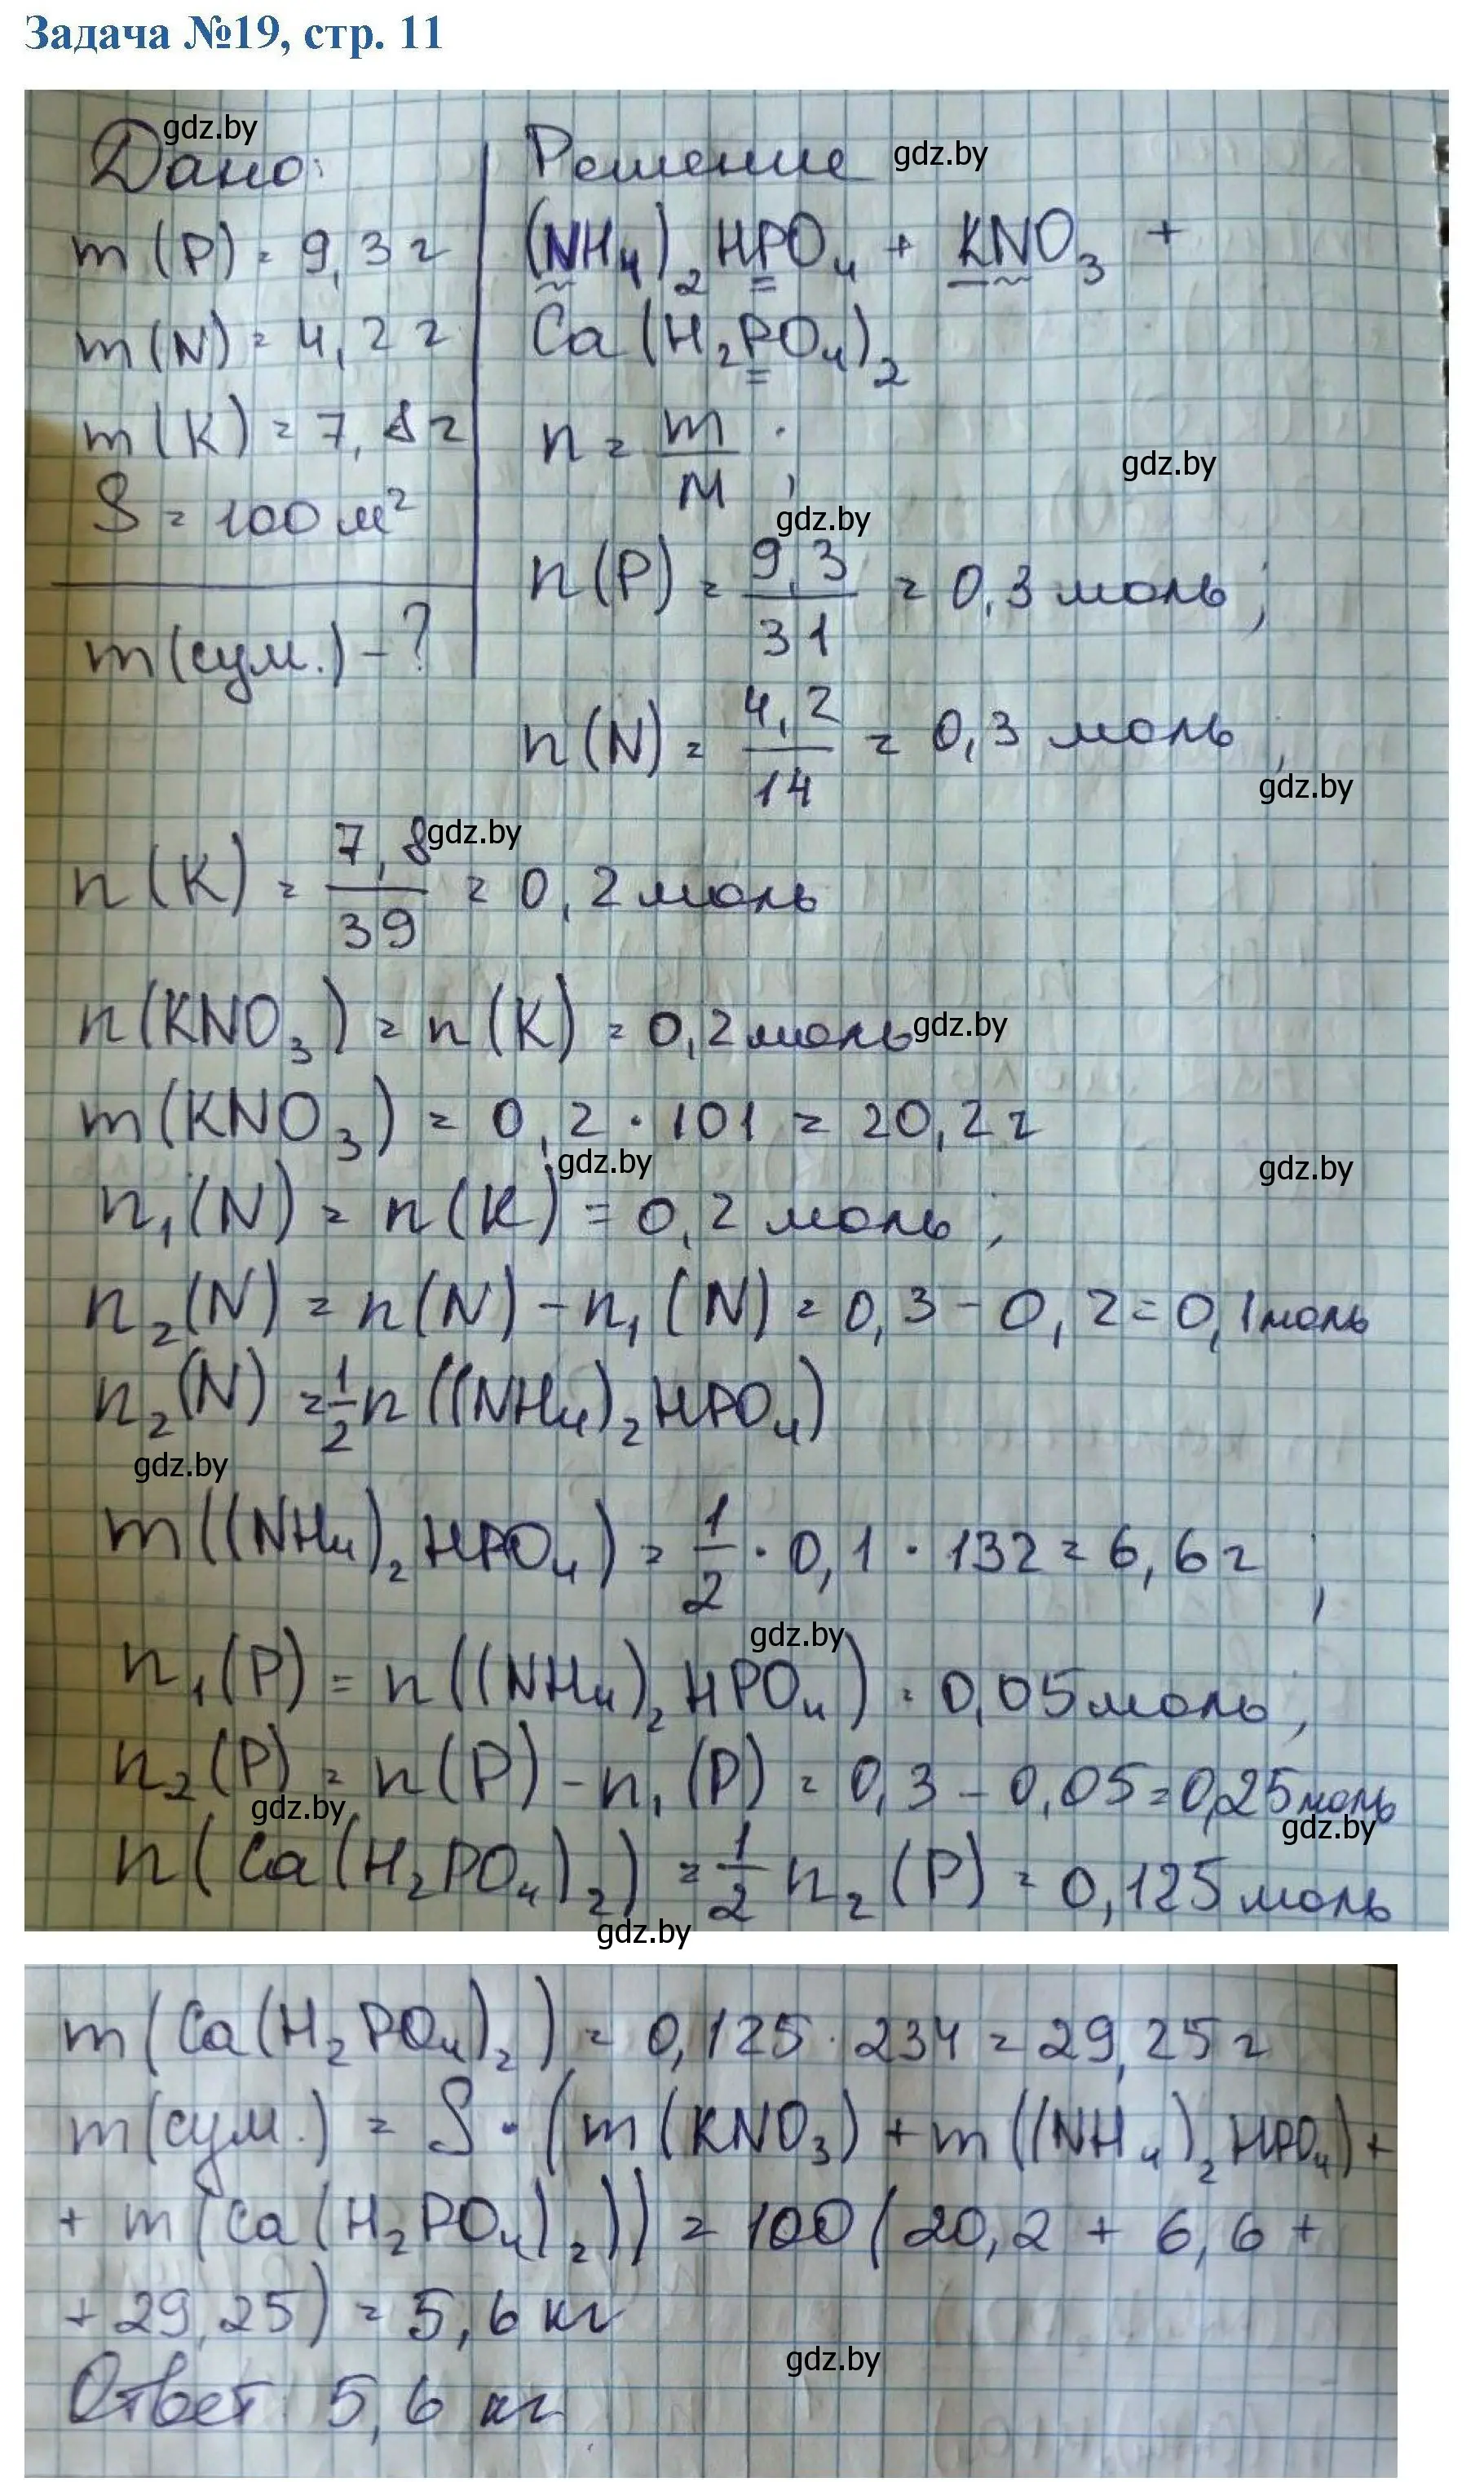 Задача №19, стр. 11
gdz.by
Дано:
m(P) = 9,3 г
m(N) = 4,2 г
m(K) = 7,8 г
S = 100 м²
m(сум.) - ?
Решение gdz.by
(NH₄)₂HPO₄ + KNO₃ +
Ca(H₂PO₄)₂
n = m/M;
gdz.by
gdz.by
n(P) = 9,3/31 = 0,3 моль;
n(N) = 4,2/14 = 0,3 моль,
gdz.by
n(K) = 7,8/39 = 0,2 моль
gdz.by
n(KNO₃) = n(K) = 0,2 моль
gdz.by
m(KNO₃) = 0,2 · 101 = 20,2 г
gdz.by
gdz.by
n₁(N) = n(K) = 0,2 моль;
n₂(N) = n(N) - n₁(N) = 0,3 - 0,2 = 0,1 моль
n₂(N) = 1/2 n((NH₄)₂HPO₄)
gdz.by
m((NH₄)₂HPO₄) = 1/2 · 0,1 · 132 = 6,6 г,
gdz.by
n₁(P) = n((NH₄)₂HPO₄) = 0,05 моль;
n₂(P) = n(P) - n₁(P) = 0,3 - 0,05 = 0,25 моль
gdz.by
gdz.by
n(Ca(H₂PO₄)₂) = 1/2 n₂(P) = 0,125 моль
gdz.by
m(Ca(H₂PO₄)₂) = 0,125 · 234 = 29,25 г
m(сум.) = S · (m(KNO₃) + m((NH₄)₂HPO₄) +
+ m(Ca(H₂PO₄)₂)) = 100(20,2 + 6,6 +
+ 29,25) = 5,6 кг
gdz.by
Ответ: 5,6 кг